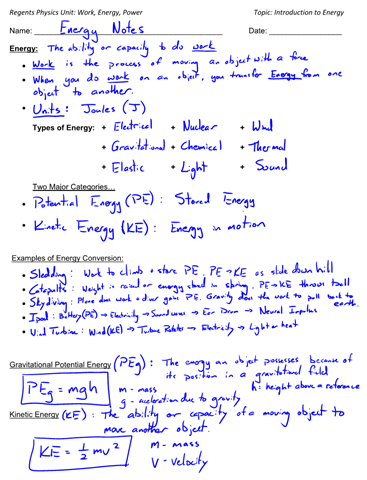 Regents Physics Unit: Work, Energy, Power Topic: Introduction to Energy
Name: Energy Notes Date:
Energy: The ability or capacity to do work
• Work is the process of moving an object with a force
• When you do work on an object, you transfer Energy from one
object to another.
• Units: Joules (J)
Types of Energy: + Electrical + Nuclear + Wind
+ Gravitational + Chemical + Thermal
+ Elastic + Light + Sound
Two Major Categories…
• Potential Energy (PE): Stored Energy
• Kinetic Energy (KE): Energy in motion
Examples of Energy Conversion:
• Sledding: Work to climb + store PE, PE → KE as slide down hill
• Catapults: Weight is raised or energy stored in string, PE → KE throws ball
• Skydiving: Plane does work + diver gains PE. Gravity does the work to pull back to
earth.
• Ipod: Battery (PE) → Electricity → Sound waves → Ear Drum → Neural Impulses
• Wind Turbine: Wind (KE) → Turbine Rotates → Electricity → Light or heat
Gravitational Potential Energy (PEg): The energy an object possesses because of
its position in a gravitational field
PEg = mgh m - mass h: height above a reference
g - acceleration due to gravity
Kinetic Energy (KE): The ability or capacity of a moving object to
move another object.
KE = ½ mv² m - mass
v - velocity